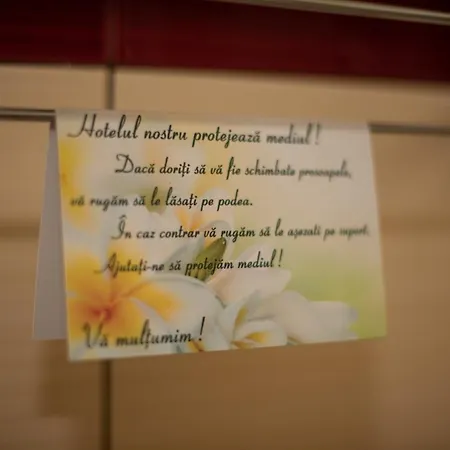 Hotelul nostru protejează mediul!
Dacă doriți să vă fie schimbate prosoapele,
vă rugăm să le lăsați pe podea.
În caz contrar vă rugăm să le așezati pe suport.
Ajutați-ne să protejăm mediul!
Vă mulțumim!